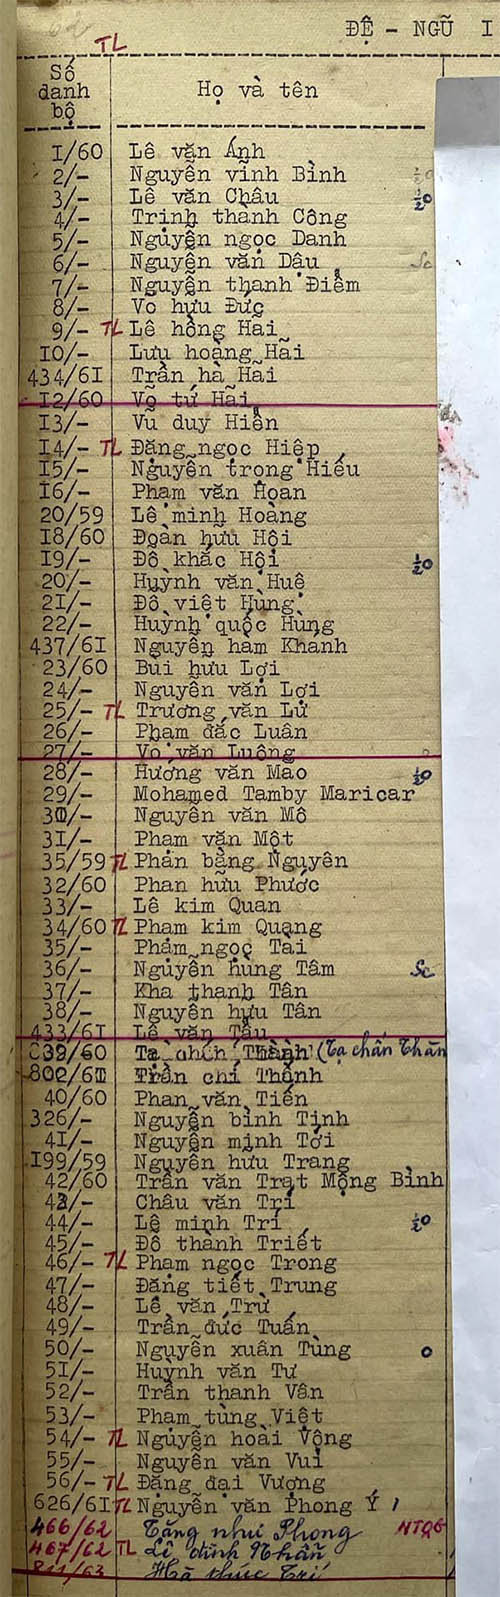 62
TL
ĐỆ - NGŨ I
Số danh bộ Họ và tên
1/60 Lê văn Ánh
2/- Nguyễn vĩnh Bình
3/- Lê văn Châu ½0
4/- Trịnh thành Công
5/- Nguyễn ngọc Danh
6/- Nguyễn văn Dậu Sc
7/- Nguyễn thanh Điểm
8/- Võ hữu Đức
9/- TL Lê hồng Hãi
10/- Lưu hoàng Hãi
434/61 Trần hà Hãi
12/60 Võ tứ Hãi
13/- Vũ duy Hiển
14/- TL Đặng ngọc Hiệp
15/- Nguyễn trọng Hiếu
16/- Phạm văn Hoan
20/59 Lê minh Hoàng
18/60 Đoàn hữu Hội
19/- Đỗ khắc Hội ½0
20/- Huỳnh văn Huê
21/- Đỗ việt Hùng
22/- Huỳnh quốc Hùng
437/61 Nguyễn hàm Khánh
23/60 Bùi hữu Lợi
24/- Nguyễn văn Lợi
25/- TL Trương văn Lữ
26/- Phạm đắc Luân
27/- Võ văn Luông
28/- Hướng văn Mao ½0
29/- Mohamed Tamby Maricar
30/- Nguyễn văn Mô
31/- Phạm văn Một
35/59 TL Phản bằng Nguyên
32/60 Phan hữu Phước
33/- Lê kim Quan
34/60 TL Phạm kim Quang
35/- Phạm ngọc Tài
36/- Nguyễn hùng Tâm Sc
37/- Kha thanh Tân
38/- Nguyễn hữu Tân
433/61 Lê văn Tẩu
39/60 Tạ chấn Thành (Tạ chấn Thàn
802/61 Trần chí Thạnh
40/60 Phan văn Tiến
326/- Nguyễn bỉnh Tịnh
41/- Nguyễn minh Tới
199/59 Nguyễn hữu Trang
42/60 Trần văn Trạt Mộng Bình
43/- Châu văn Trí
44/- Lê minh Trí ½0
45/- Đỗ thành Triết
46/- TL Phạm ngọc Trong
47/- Đặng tiết Trung
48/- Lê văn Trừ
49/- Trần đức Tuấn
50/- Nguyễn xuân Tùng 0
51/- Huỳnh văn Tư
52/- Trần thanh Vân
53/- Phạm tùng Việt
54/- TL Nguyễn hoài Vọng
55/- Nguyễn văn Vui
56/- TL Đặng đại Vượng
626/61 TL Nguyễn văn Phong Ý
466/62 Tăng như Phong NTQ6
467/62 TL Lê đình Nhẫn
811/63 Hà thúc Trí